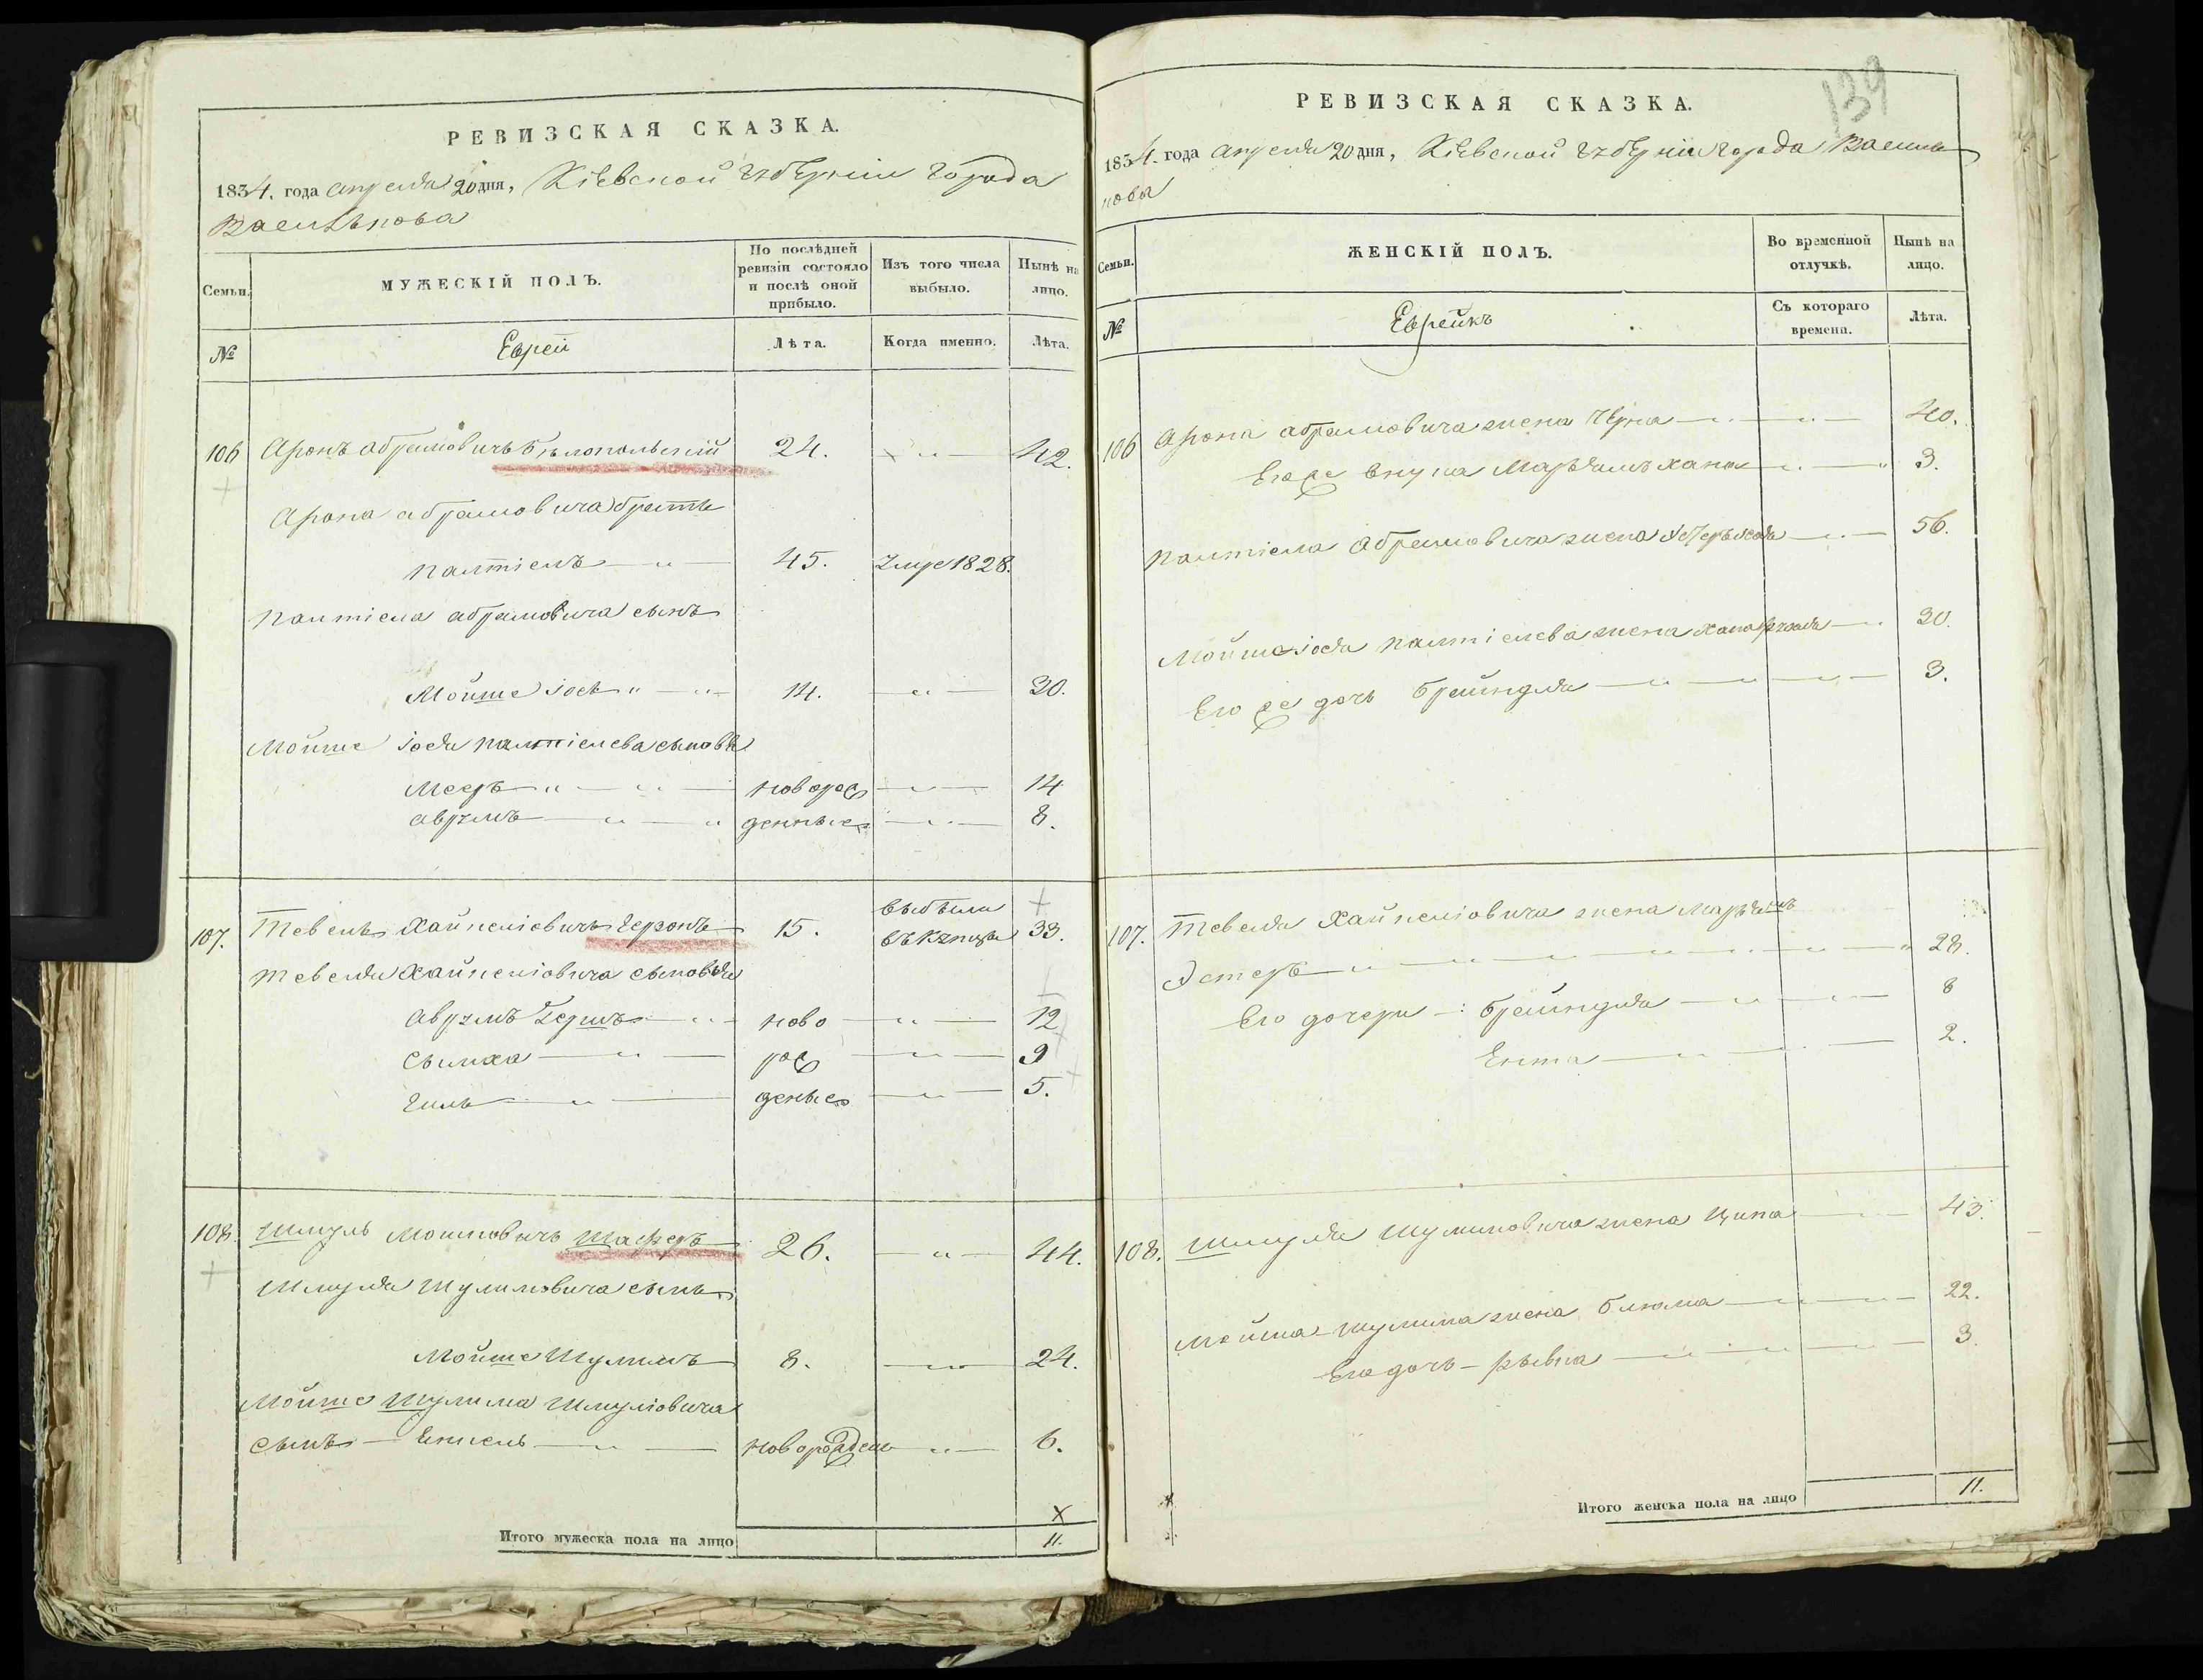 РЕВИЗСКАЯ СКАЗКА.
1834. года апреля 20 дня, Кіевской губерніи города
Василькова
Семьи.
МУЖЕСКІЙ ПОЛЪ.
По послѣдней ревизіи состояло и послѣ оной прибыло.
Изъ того числа выбыло.
Нынѣ на лицо.
№
Евреи
Лѣта.
Когда именно.
Лѣта.
106 Аронъ Абрамовичъ Бѣлопольскій 24. 42.
Арона Абрамовича братъ
Палтіель 45. 1828.
Палтіела Абрамовича сынъ
Мойше Іось 14. 30.
Мойше Іося Палтіелева сыновья
Мееръ новорож 14
Аврумъ денные 8.
107. Тевель Хайкеліовичъ 15. выбыли въ купцы 33.
Тевеля Хайкеліовича сыновья
Аврумъ Гершъ ново 12
Сымха рож 9
денные 5.
108. Шмуль Мошковичъ 26. 44.
Шмуля Шулимовича сынъ
Мойше Шулимъ 8. 24.
Мойше Шулима Шмуліовича
сынъ Енкель новорожден 6.
Х
Итого мужеска пола на лицо 11.
139
РЕВИЗСКАЯ СКАЗКА.
1834. года апреля 20 дня, Кіевской губерніи города Василь
кова
Семьи.
ЖЕНСКІЙ ПОЛЪ.
Во временной отлучкѣ.
Нынѣ на лицо.
№
Евреекъ
Съ котораго времени.
Лѣта.
106 Арона Абрамовича жена Черна 40.
Его же внука Марьямъ Хана 3.
Палтіела Абрамовича жена 56.
Мойше Іося Палтіелева жена Хана 30.
Его же дочь Брейндля 3.
107. Тевеля Хайкеліовича жена Марьямъ
Эстеръ 28.
Его дочери: Брейндля 8
Ента 2.
108. Шмуля Шулимовича жена Ципа 43.
Мойша Шулима жена Блюма 22.
Его дочь Рывка 3.
Итого женска пола на лицо 11.